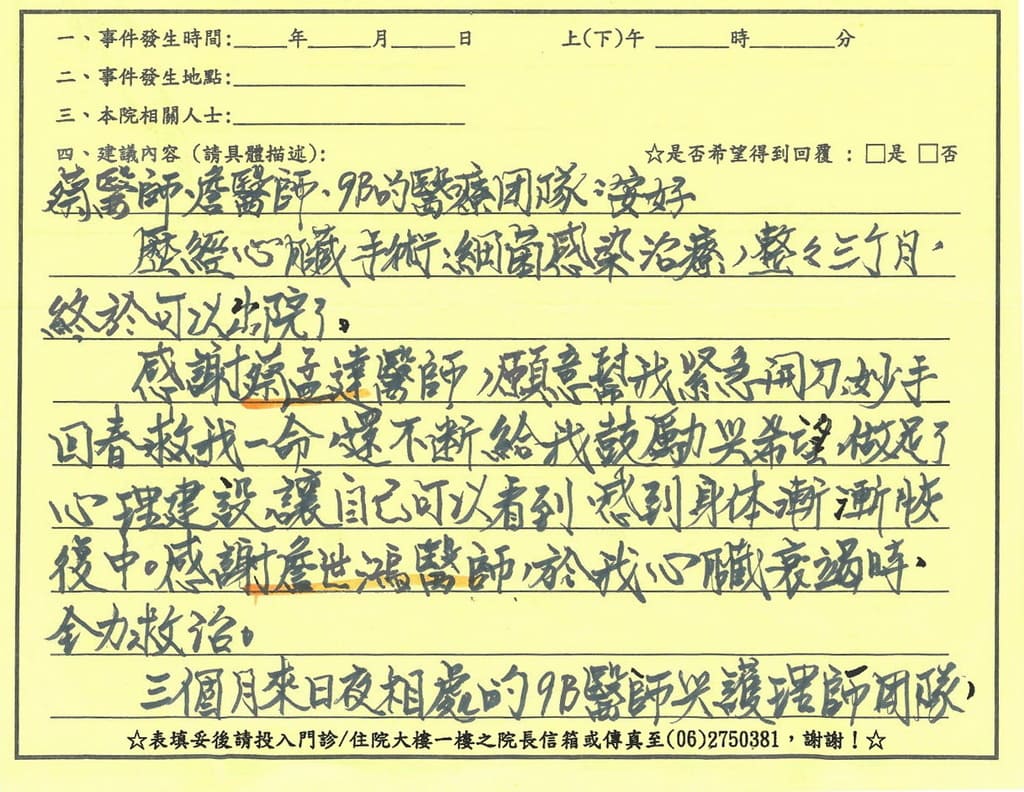 一、事件發生時間:_____年______月______日 上(下)午 _______時________分
二、事件發生地點:______________________
三、本院相關人士:______________________
四、建議內容（請具體描述）: ☆是否希望得到回覆：□是 □否
蔡醫師、詹醫師、9B的醫療团隊：安好
歷經心臟手術、細菌感染治療，整々三个月，
終於可以出院了。
感謝蔡孟達醫師，願意幫我緊急開刀，妙手
回春救我一命，還不断給我鼓勵與希望，做足了
心理建設，讓自己可以看到，感到身体漸漸恢
復中。感謝詹世鴻醫師，於我心臟衰竭時，
全力救治。
三個月來日夜相處的9B醫師與護理師团隊，
☆表填妥後請投入門診/住院大樓一樓之院長信箱或傳真至(06)2750381，謝謝！☆